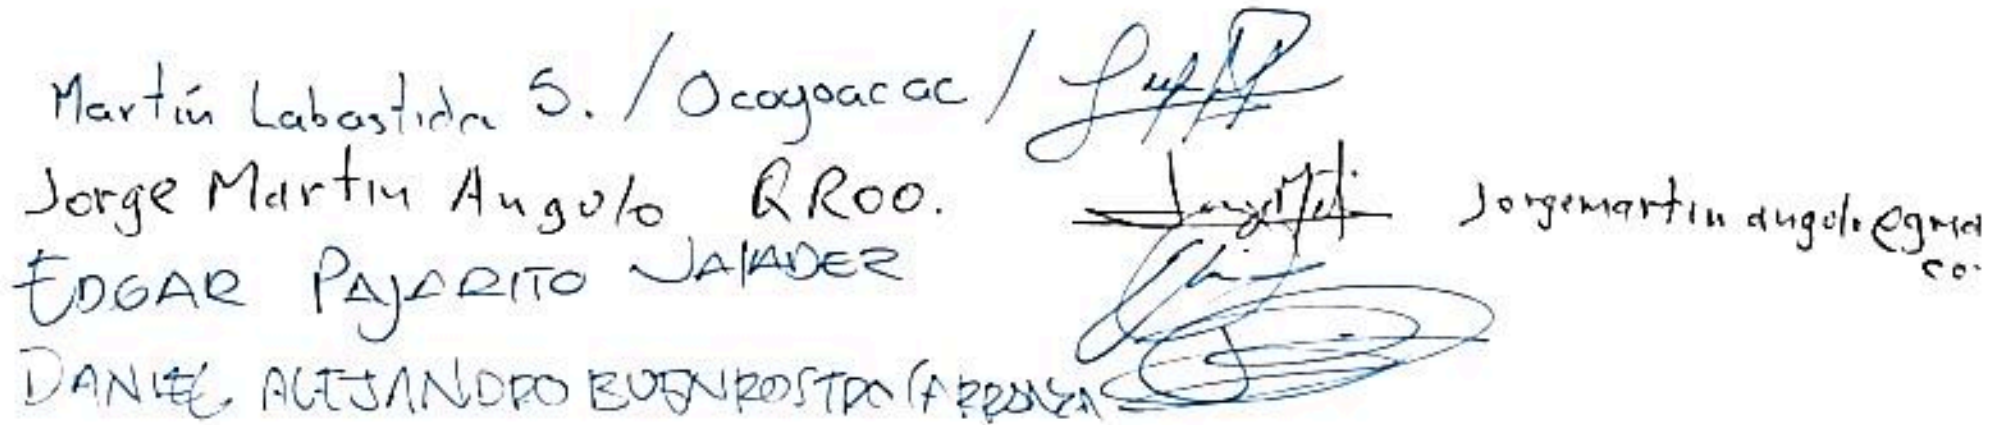 Martín Labastida S. / Ocoyoacac /
Jorge Martin Angulo QRoo. Jorgemartin angulo@gma
co.
EDGAR PAJARITO
DANIEL ALEJANDRO BUENROSTRO